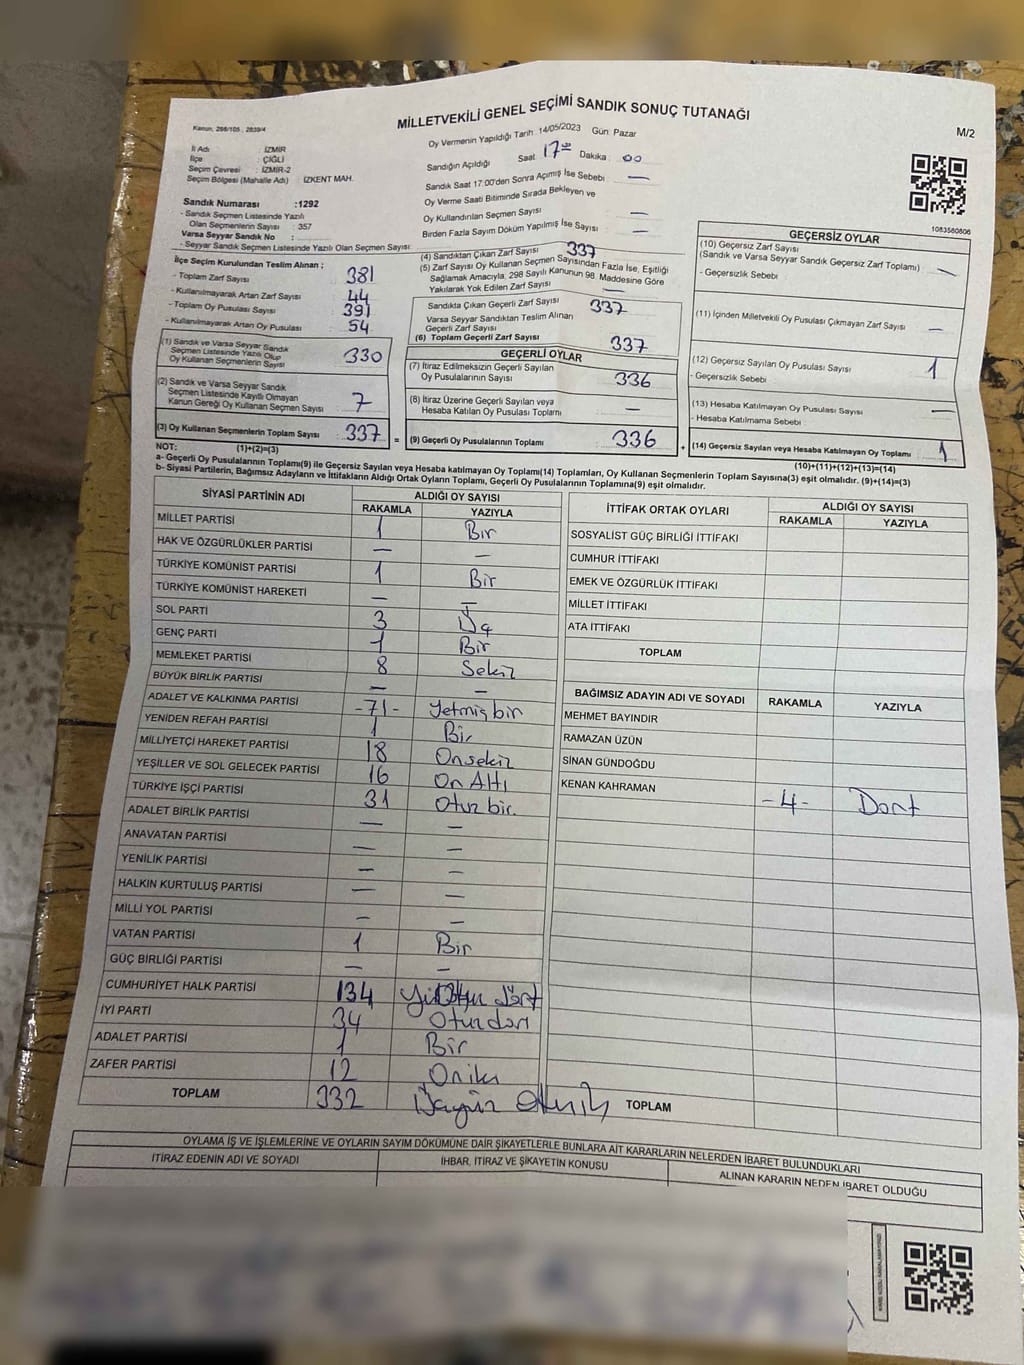 MİLLETVEKİLİ GENEL SEÇİMİ SANDIK SONUÇ TUTANAĞI
Kanun, 298/105 , 2839/4
M/2
Oy Vermenin Yapıldığı Tarih 14/05/2023 Gün Pazar
İl Adı : İZMİR
İlçe : ÇİĞLİ
Seçim Çevresi : İZMİR-2
Seçim Bölgesi (Mahalle Adı) : IZKENT MAH.
Sandığın Açıldığı Saat 17:00 Dakika 00
Sandık Saat 17:00'den Sonra Açımış İse Sebebi —
Oy Verme Saati Bitiminde Sırada Bekleyen ve
Oy Kullandırılan Seçmen Sayısı —
Birden Fazla Sayım Döküm Yapılmış İse Sayısı —
Sandık Numarası :1292
- Sandık Seçmen Listesinde Yazılı
Olan Seçmenlerin Sayısı : 357
Varsa Seyyar Sandık No :
- Seyyar Sandık Seçmen Listesinde Yazılı Olan Seçmen Sayısı:
1083580806
İlçe Seçim Kurulundan Teslim Alınan ;
- Toplam Zarf Sayısı 381
- Kullanılmayarak Artan Zarf Sayısı 44
- Toplam Oy Pusulası Sayısı 391
- Kullanılmayarak Artan Oy Pusulası 54
(1) Sandık ve Varsa Seyyar Sandık
Seçmen Listesinde Yazılı Olup
Oy Kullanan Seçmenlerin Sayısı 330
(2) Sandık ve Varsa Seyyar Sandık
Seçmen Listesinde Kayıtlı Olmayan
Kanun Gereği Oy Kullanan Seçmen Sayısı 7
(3) Oy Kullanan Seçmenlerin Toplam Sayısı 337
(4) Sandıktan Çıkan Zarf Sayısı 337
(5) Zarf Sayısı Oy Kullanan Seçmen Sayısından Fazla İse, Eşitliği
Sağlamak Amacıyla, 298 Sayılı Kanunun 98. Maddesine Göre
Yakılarak Yok Edilen Zarf Sayısı
Sandıkta Çıkan Geçerli Zarf Sayısı 337
Varsa Seyyar Sandıktan Teslim Alınan
Geçerli Zarf Sayısı
(6) Toplam Geçerli Zarf Sayısı 337
GEÇERLİ OYLAR
(7) İtiraz Edilmeksizin Geçerli Sayılan
Oy Pusulalarının Sayısı 336
(8) İtiraz Üzerine Geçerli Sayılan veya
Hesaba Katılan Oy Pusulası Toplamı —
= (9) Geçerli Oy Pusulalarının Toplamı 336 +
GEÇERSİZ OYLAR
(10) Geçersiz Zarf Sayısı
(Sandık ve Varsa Seyyar Sandık Geçersiz Zarf Toplamı) —
- Geçersizlik Sebebi :
(11) İçinden Milletvekili Oy Pusulası Çıkmayan Zarf Sayısı —
(12) Geçersiz Sayılan Oy Pusulası Sayısı 1
- Geçersizlik Sebebi :
(13) Hesaba Katılmayan Oy Pusulası Sayısı —
- Hesaba Katılmama Sebebi :
(14) Geçersiz Sayılan veya Hesaba Katılmayan Oy Toplamı 1
NOT: (1)+(2)=(3)
(10)+(11)+(12)+(13)=(14)
a- Geçerli Oy Pusulalarının Toplamı(9) ile Geçersiz Sayılan veya Hesaba katılmayan Oy Toplamı(14) Toplamları, Oy Kullanan Seçmenlerin Toplam Sayısına(3) eşit olmalıdır. (9)+(14)=(3)
b- Siyasi Partilerin, Bağımsız Adayların ve İttifakların Aldığı Ortak Oyların Toplamı, Geçerli Oy Pusulalarının Toplamına(9) eşit olmalıdır.
SİYASİ PARTİNİN ADI ALDIĞI OY SAYISI
RAKAMLA YAZIYLA
MİLLET PARTİSİ 1 Bir
HAK VE ÖZGÜRLÜKLER PARTİSİ — —
TÜRKİYE KOMÜNİST PARTİSİ 1 Bir
TÜRKİYE KOMÜNİST HAREKETİ — —
SOL PARTİ 3 Üç
GENÇ PARTİ 1 Bir
MEMLEKET PARTİSİ 8 Sekiz
BÜYÜK BİRLİK PARTİSİ — —
ADALET VE KALKINMA PARTİSİ -71- Yetmiş bir
YENİDEN REFAH PARTİSİ 1 Bir
MİLLİYETÇİ HAREKET PARTİSİ 18 Onsekiz
YEŞİLLER VE SOL GELECEK PARTİSİ 16 On Altı
TÜRKİYE İŞÇİ PARTİSİ 31 Otuz bir.
ADALET BİRLİK PARTİSİ — —
ANAVATAN PARTİSİ — —
YENİLİK PARTİSİ — —
HALKIN KURTULUŞ PARTİSİ — —
MİLLİ YOL PARTİSİ — —
VATAN PARTİSİ 1 Bir
GÜÇ BİRLİĞİ PARTİSİ — —
CUMHURİYET HALK PARTİSİ 134 dört
İYİ PARTİ 34 Otuzdört
ADALET PARTİSİ 1 Bir
ZAFER PARTİSİ 12 Oniki
TOPLAM 332
İTTİFAK ORTAK OYLARI ALDIĞI OY SAYISI
RAKAMLA YAZIYLA
SOSYALİST GÜÇ BİRLİĞİ İTTİFAKI
CUMHUR İTTİFAKI
EMEK VE ÖZGÜRLÜK İTTİFAKI
MİLLET İTTİFAKI
ATA İTTİFAKI
TOPLAM
BAĞIMSIZ ADAYIN ADI VE SOYADI RAKAMLA YAZIYLA
MEHMET BAYINDIR
RAMAZAN ÜZÜN
SİNAN GÜNDOĞDU
KENAN KAHRAMAN -4- Dört
TOPLAM
OYLAMA İŞ VE İŞLEMLERİNE VE OYLARIN SAYIM DÖKÜMÜNE DAİR ŞİKAYETLERLE BUNLARA AİT KARARLARIN NELERDEN İBARET BULUNDUKLARI
İTİRAZ EDENİN ADI VE SOYADI İHBAR, İTİRAZ VE ŞİKAYETİN KONUSU ALINAN KARARIN NEDEN İBARET OLDUĞU